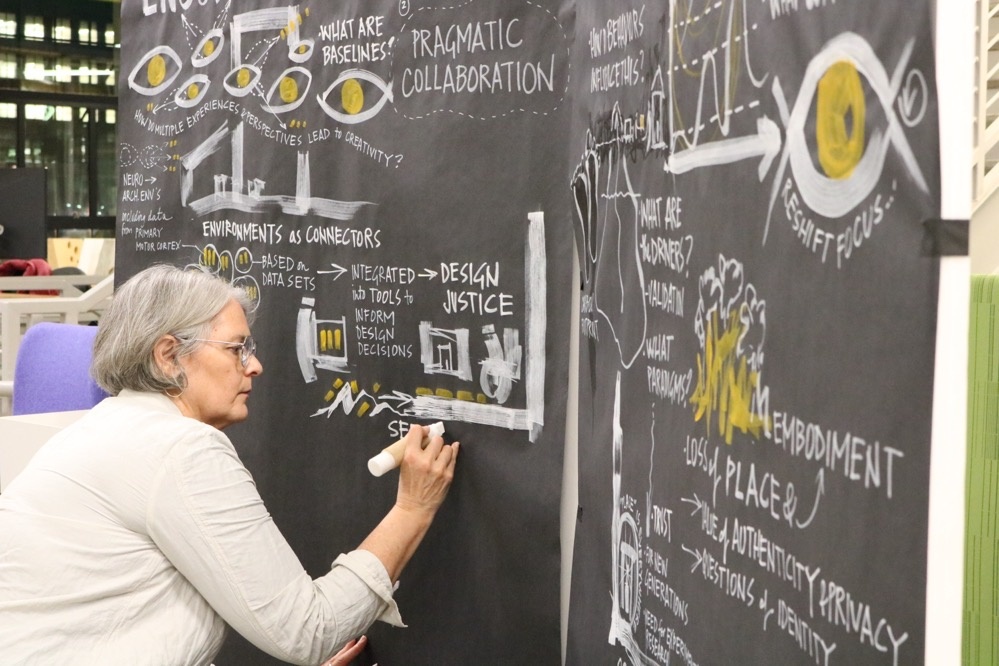 WHAT ARE
BASELINES?
PRAGMATIC
COLLABORATION
HOW DO MULTIPLE EXPERIENCES & PERSPECTIVES LEAD TO CREATIVITY?
NEURO →
ARCH. ENV'S
including data
from PRIMARY
MOTOR CORTEX
ENVIRONMENTS as CONNECTORS
BASED ON
DATA SETS
→ INTEGRATED
into TOOLS to
INFORM
DESIGN
DECISIONS
→ DESIGN
JUSTICE
SE
BEHAVIORS
THIS?
RESHIFT FOCUS...
WHAT ARE
the DRIVERS?
• VALIDATION
• WHAT
PARADIGMS?
EMBODIMENT
• LOSS of PLACE &
→ VALUE of AUTHENTICITY & PRIVACY
→ QUESTIONS of IDENTITY
• TRUST
• FOR NEW
GENERATIONS
NEED for
RESEARCH